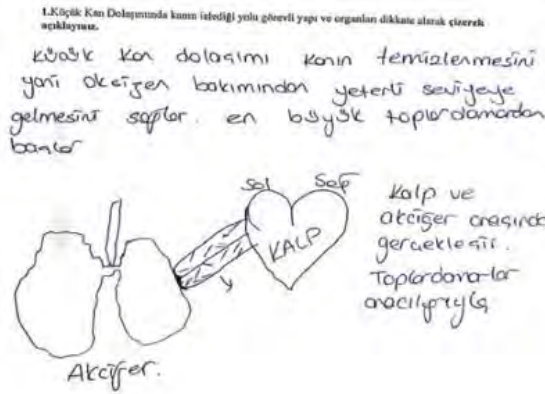 1.Küçük Kan Dolaşımında kanın izlediği yolu görevli yapı ve organları dikkate alarak çizerek
açıklayınız.
Küçük Kan dolaşımı kanın temizlenmesini
yani oksijen bakımından yeterli seviyeye
gelmesini sağlar. en büyük toplardamardan
başlar
Sol Sağ
KALP
Kalp ve
akciğer arasında
gerçekleşir.
Toplardamarlar
aracılığıyla
Akciğer.